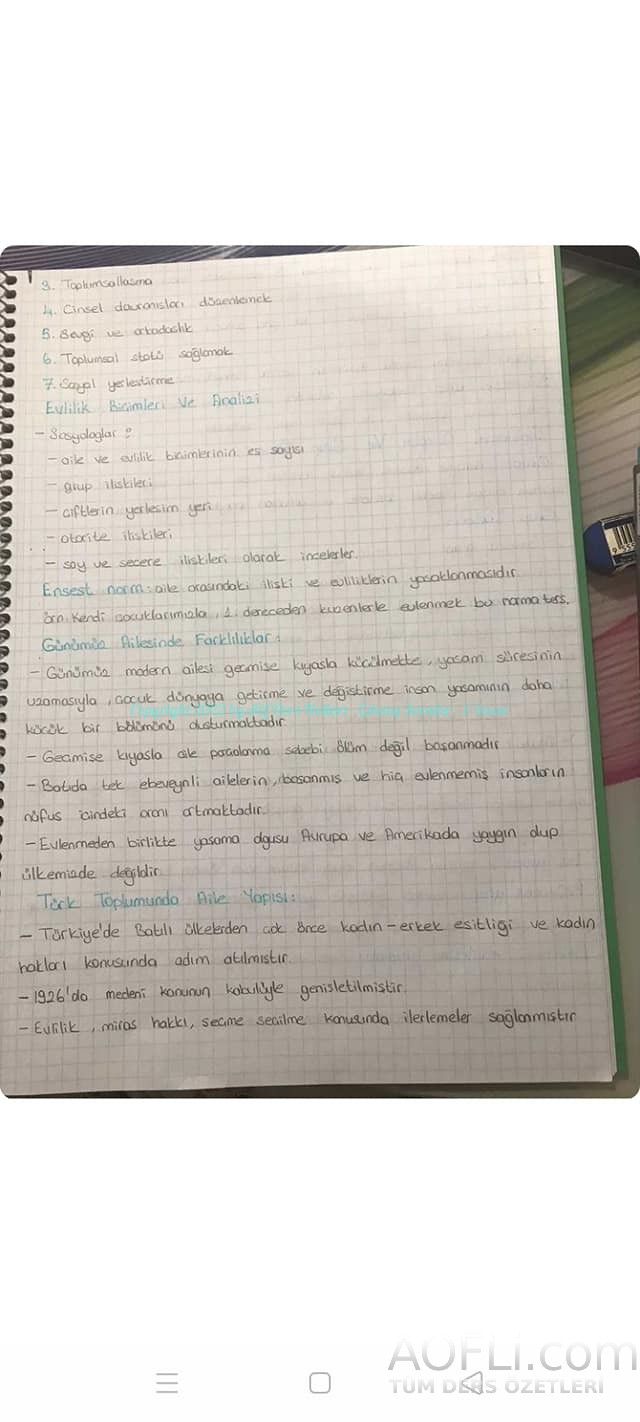 3. Toplumsallasma
4. Cinsel davranısları düzenlemek
5. Sevgi ve arkadaslık
6. Toplumsal statü sağlamak
7. Sosyal yerlestirme
Evlilik Bicimleri Ve Analizi
- Sosyologlar :
- aile ve evlilik bicimlerinin es sayısı
- grup iliskileri
- ciftlerin yerlesim yeri
- otorite iliskileri
- soy ve secere iliskileri olarak incelerler.
Ensest norm : aile arasındaki iliski ve evliliklerin yasaklanmasıdır.
örn. Kendi cocuklarımızla, 1. dereceden kuzenlerle evlenmek bu norma ters.
Günümüz Ailesinde Farklılıklar :
- Günümüz modern ailesi gecmise kıyasla kücülmekte, yasam süresinin
uzamasıyla, cocuk dünyaya getirme ve değistirme insan yasamının daha
kücük bir bölümünü olusturmaktadır.
- Gecmise kıyasla aile parcalanma sebebi ölüm değil bosanmadır
- Batıda tek ebeveynli ailelerin, bosanmıs ve hic evlenmemis insanların
nüfus icindeki oranı artmaktadır.
- Evlenmeden birlikte yasama olgusu Avrupa ve Amerikada yaygın olup
ülkemizde değildir.
Türk Toplumunda Aile Yapısı :
- Türkiye'de Batılı ülkelerden cok önce kadın-erkek esitliği ve kadın
hakları konusunda adım atılmıstır.
- 1926'da medeni kanunun kabulüyle genisletilmistir.
- Evlilik, miras hakkı, secme secilme konusunda ilerlemeler sağlanmıstır
AOFLi.com
TÜM DERS ÖZETLERİ